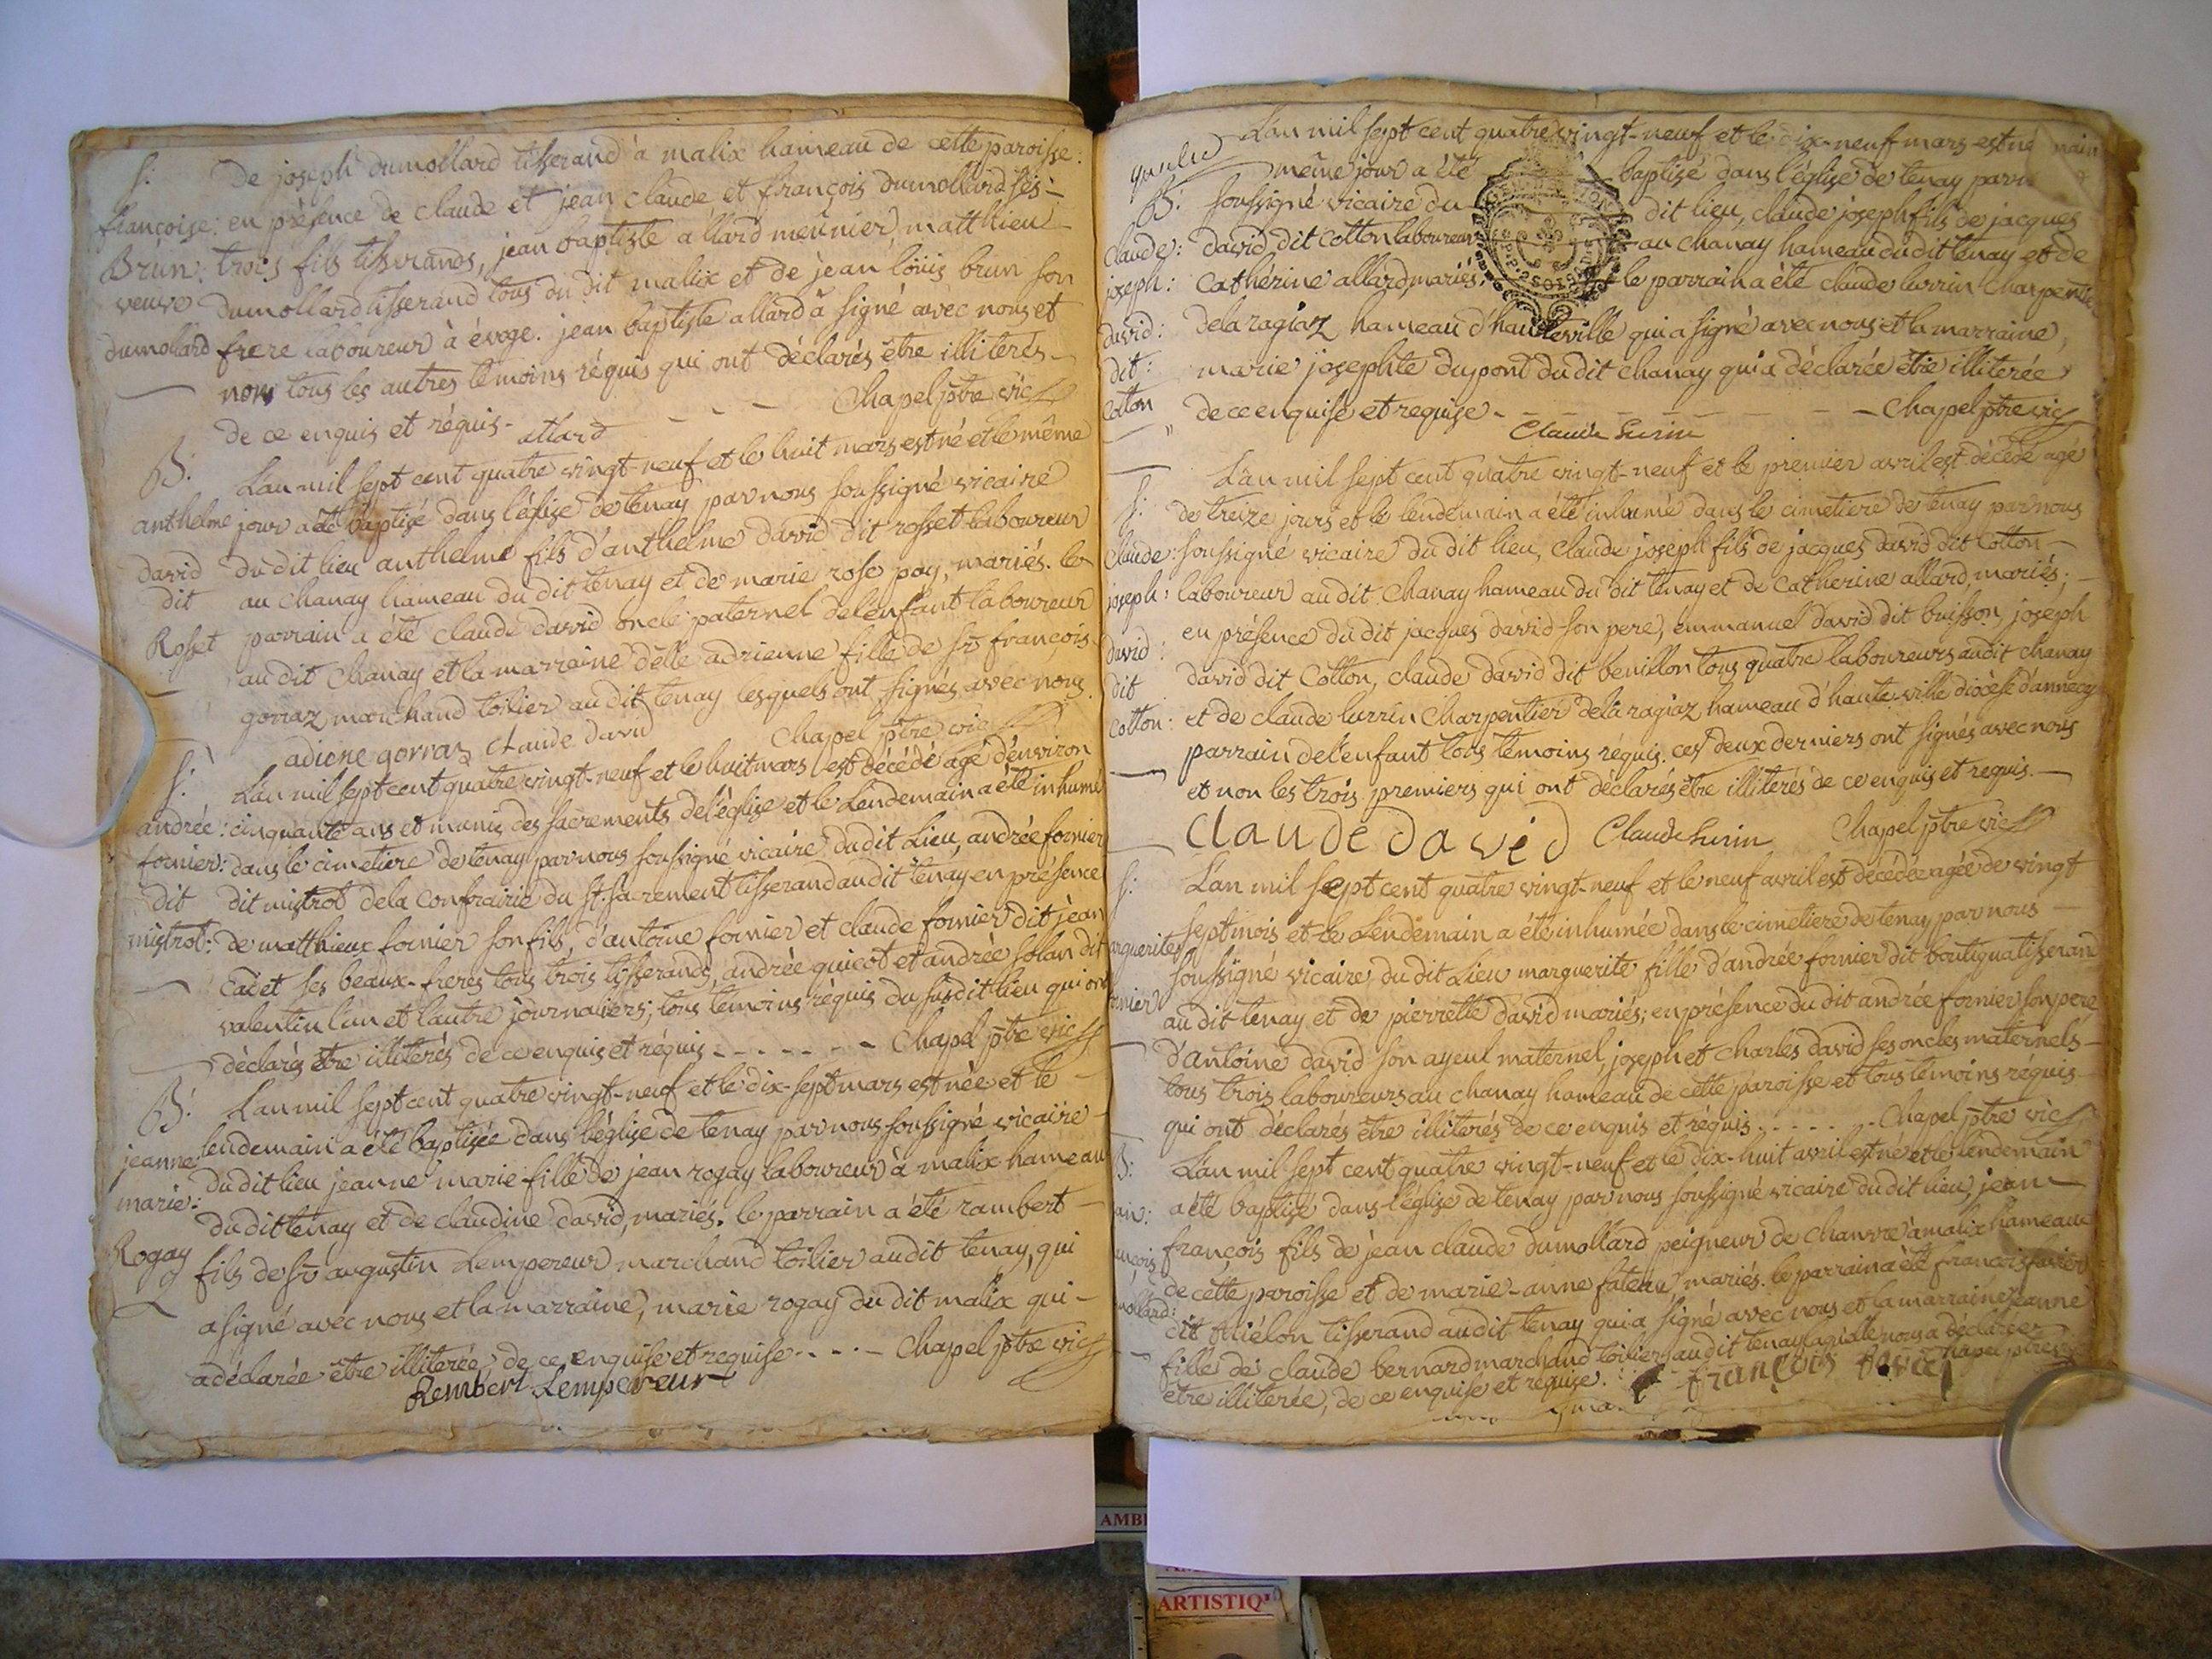 S:
françoise:
Brun:
veuve
dumollard
De joseph dumollard tisserand à malix hameau de cette paroisse:
en présence de claude et jean claude et françois dumollard ses
trois fils tisserands, jean baptiste allard meunier, matthieu
dumollard tisserand tous du dit malix et de jean loüis brun son
frere laboureur à évoge. jean baptiste allard a signé avec nous et
non tous les autres témoins réquis qui ont déclarés être illiterés
de ce enquis et réquis - allard - - - Chapel ptre vic
B:
anthelme
david
dit
Rosset
L'an mil sept cent quatre vingt-neuf et le huit mars est né et le même
jour a été baptisé dans l'église de tenay par nous soussigné vicaire
du dit lieu anthelme fils d'anthelme david dit rosset laboureur
au chanay hameau du dit tenay et de marie rose pay, mariés. le
parrain a été claude david oncle paternel de l'enfant laboureur
au dit chanay et la marraine delle adrienne fille de sr françois
gorraz marchand toilier au dit tenay lesquels ont signés avec nous.
adiene gorraz claude david Chapel ptre vic
S:
andrée:
fornier:
dit
mistrot:
L'an mil sept cent quatre vingt-neuf et le huit mars est décédé agé d'environ
cinquante ans et munis des sacrements de l'église et le Lendemain a été inhumé
dans le cimetiere de tenay par nous soussigné vicaire du dit Lieu, andrée fornier
dit mistrot de la confrairie du st. sacrement tisserand au dit tenay en présence
de matthieux fornier son fils, d'antoine fornier et claude fornier dit jean
cadet ses beaux-freres tous trois tisserands, andrée guicot et andrée solan dit
valentin l'un et l'autre journaiers; tous temoins réquis du susdit lieu qui ont
déclarés être illiterés de ce enquis et réquis - - - - - - - Chapel ptre vic
B:
jeanne
marie:
Rogay
L'an mil sept cent quatre vingt-neuf et le dix-sept mars est née et le
lendemain a été baptisée dans l'église de tenay par nous soussigné vicaire
du dit lieu jeanne marie fille de jean rogay laboureur à malix hameau
du dit tenay et de claudine david, mariés. le parrain a été rambert
fils de sr augustin Lempereur marchand toilier au dit tenay, qui
a signé avec nous et la marraine, marie rogay du dit malix qui
a déclarée être illiterée, de ce enquise et requise - - - - Chapel ptre vic
Rembert Lempereur
B:
claude:
joseph:
david:
dit:
cotton
L'an mil sept cent quatre vingt-neuf et le dix-neuf mars est né
même jour a été baptisé dans l'église de tenay par
soussigné vicaire du dit lieu, claude joseph fils de jacques
david dit cotton laboureur au chanay hameau du dit tenay et de
Cathérine allard, mariés; le parrain a été claude lurrin charpentier
de la ragiaz hameau d'hauteville qui a signé avec nous et la marraine,
marie josephte dupont du dit chanay qui a déclarée être illiterée
de ce enquise et requise - - - - - Chapel ptre vic
Claude Lurin
S:
Claude:
joseph:
david:
dit
cotton:
L'an mil sept cent quatre vingt-neuf et le premier avril est décédé agé
de treize jours et le lendemain a été inhumé dans le cimetiere de tenay par nous
soussigné vicaire du dit lieu, claude joseph fils de jacques david dit cotton
laboureur au dit Chanay hameau du dit tenay et de catherine allard, mariés;
en présence du dit jacques david son pere, emmanuel david dit buisson, joseph
david dit Cotton, claude david dit benillon tous quatre laboureurs au dit chanay
et de claude lurrin Charpentier de la ragiaz hameau d'haute-ville diocèse d'annecy
parrain de l'enfant tous témoins réquis. ces deux derniers ont signés avec nous
et non les trois premiers qui ont déclarés être illiterés de ce enquis et requis.
claude david Claude Lurin Chapel ptre vic
S:
arguerite
ornier
L'an mil sept cent quatre vingt-neuf et le neuf avril est décédée agée de vingt
sept mois et le Lendemain a été inhumée dans le cimetiere de tenay par nous
soussigné vicaire du dit Lieu marguerite fille d'andrée fornier dit boutiqua tisserand
au dit tenay et de pierrette david mariés; en présence du dit andrée fornier son pere
d'antoine david son ayeul maternel, joseph et charles david ses oncles maternels
tous trois laboureurs au chanay hameau de cette paroisse et tous témoins réquis
qui ont déclarés être illiterés de ce enquis et réquis - - - - - Chapel ptre vic
B:
an:
ançois
mollard:
L'an mil sept cent quatre vingt-neuf et le dix-huit avril est né et le lendemain
a été baptisé dans l'église de tenay par nous soussigné vicaire du dit lieu, jean
françois fils de jean claude dumollard peigneur de chanvre à malix hameau
de cette paroisse et de marie-anne mariés. le parrain a été françois
dit tisserand au dit tenay qui a signé avec nous et la marraine jeanne
fille de claude bernard marchand toilier au dit tenay laquelle nous a déclarée
être illiterée, de ce enquise et requise. françois Chapel ptre